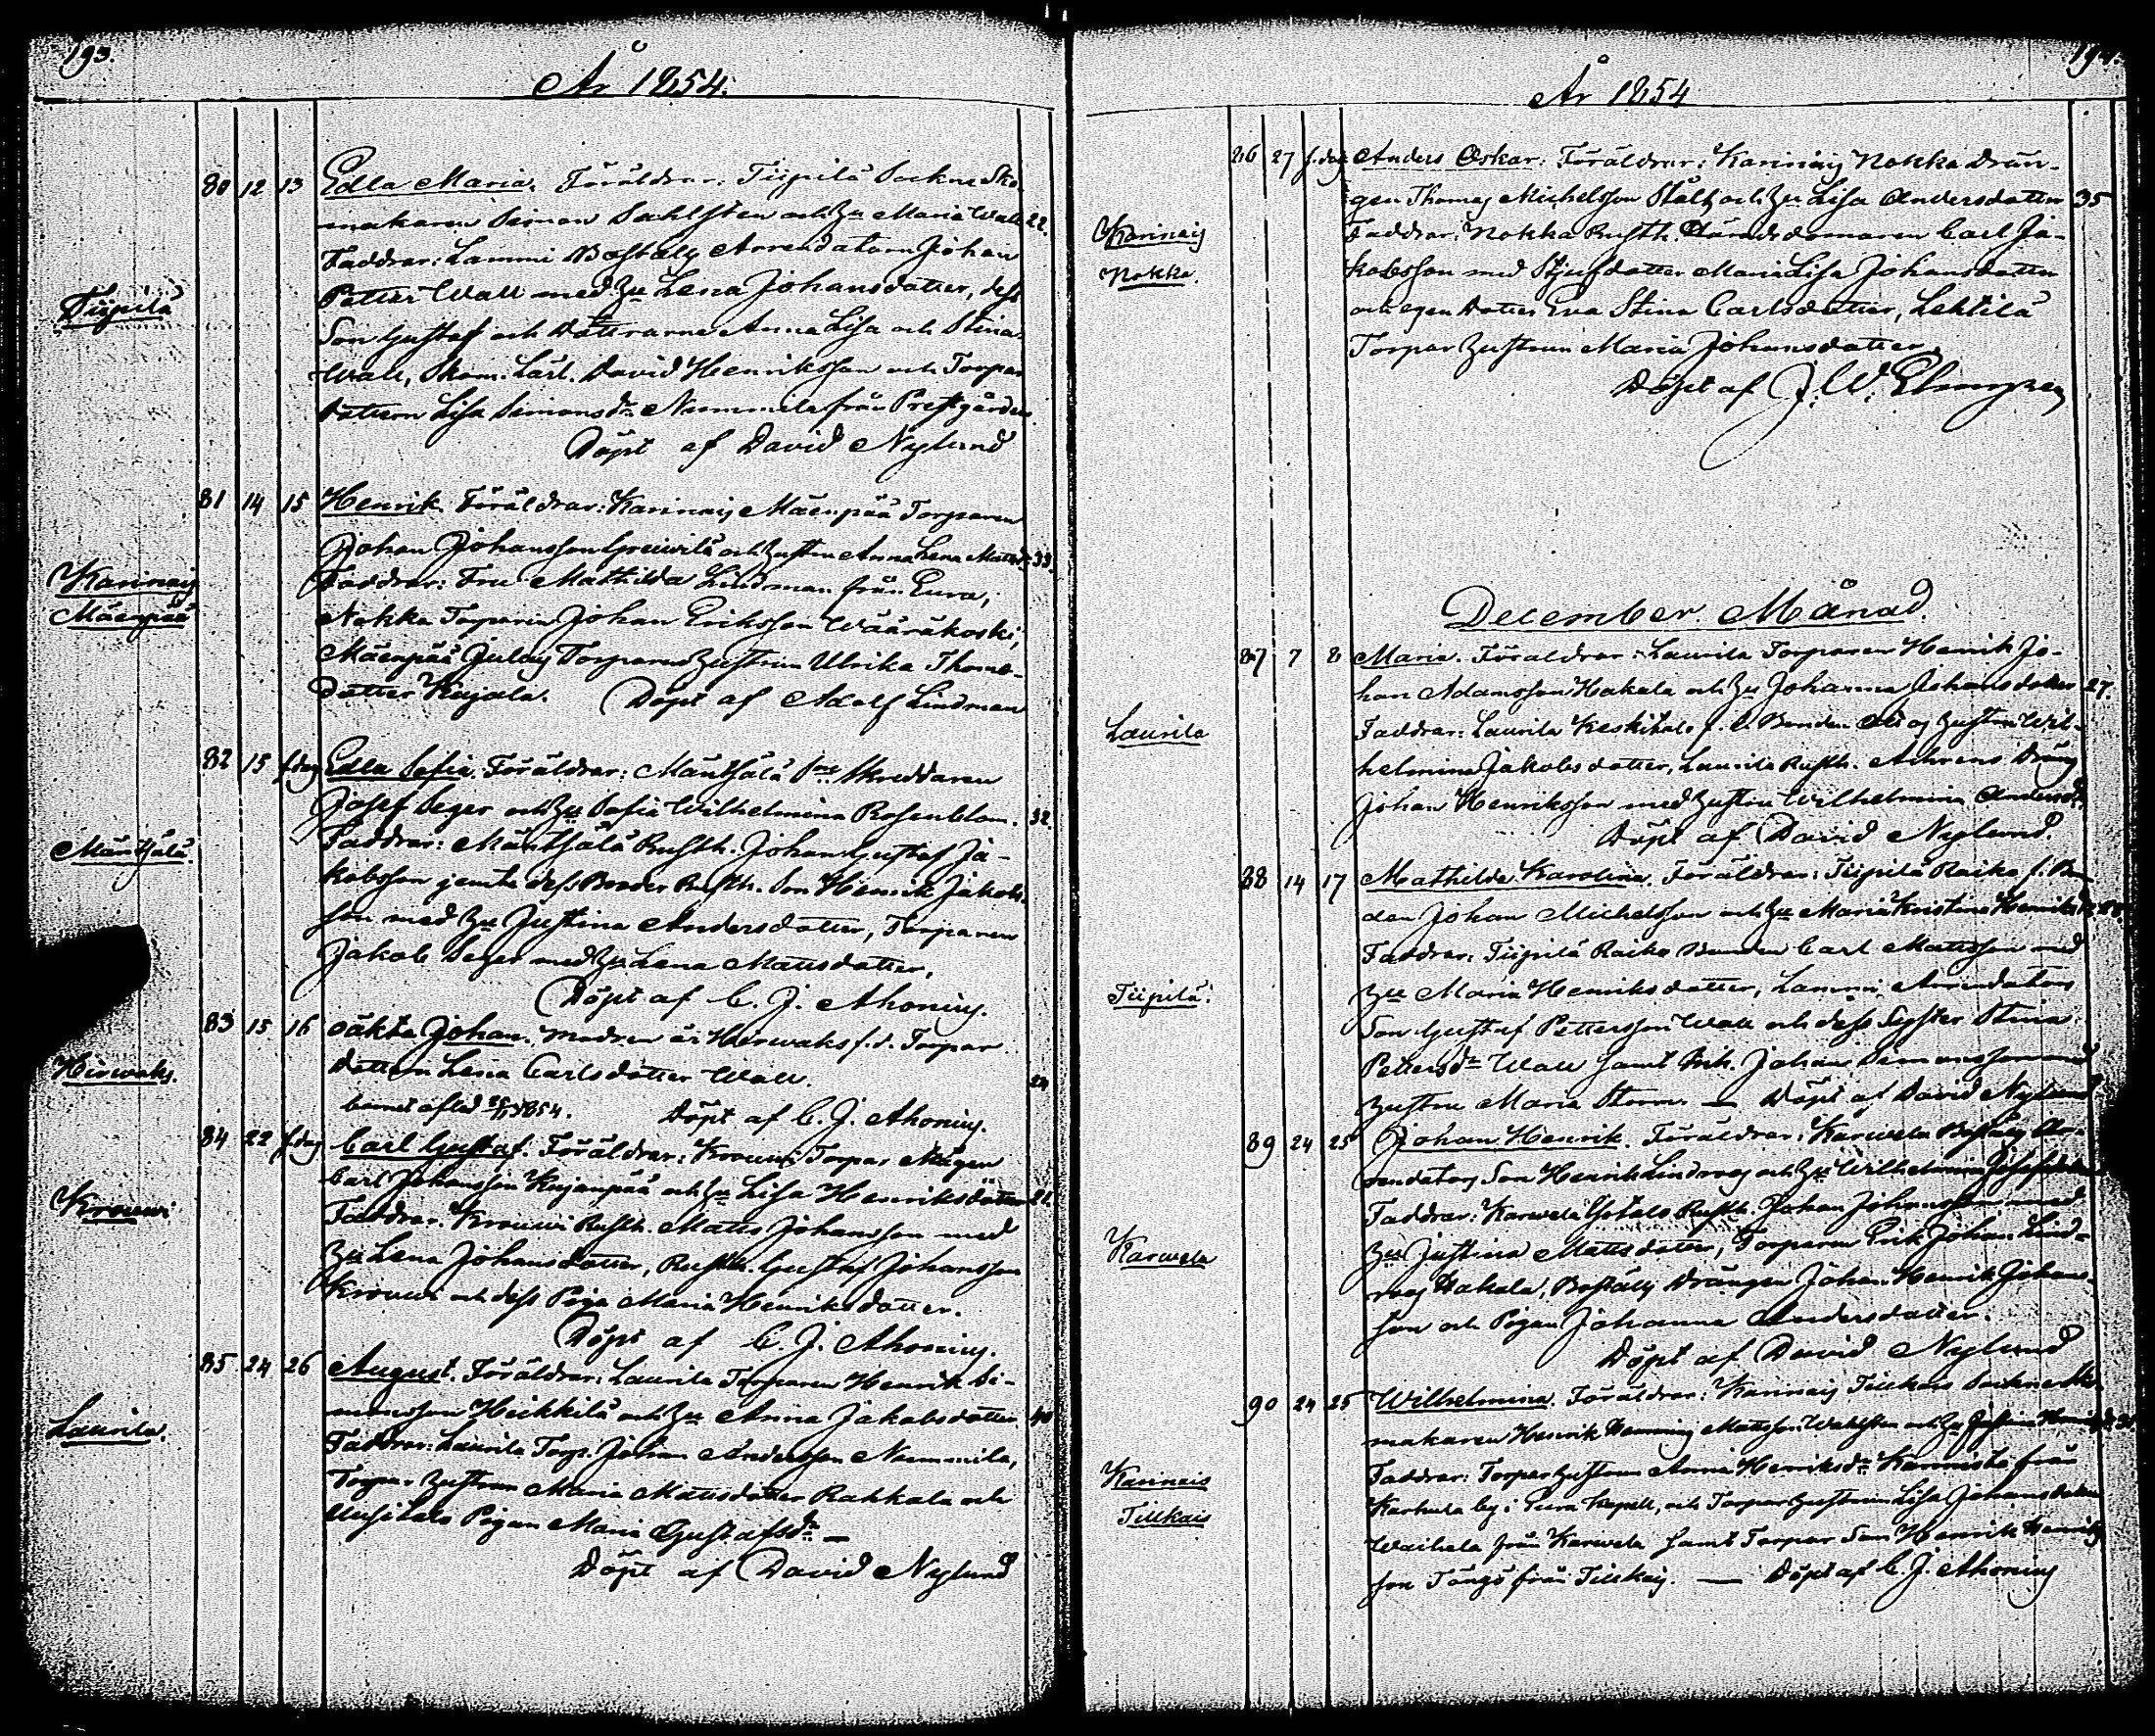 193.
År 1854.
Tiipilä
80 12 13 Edla Maria. Föräldrar: Tiipilä Sockne Sko-
makaren Simon Sahlsten och Hu Maria Wall 22.
Faddrar: Lammi Boställs Arrendatorn Johan
Petter Wall med Hu Lena Johansdotter, dess
Son Gustaf och Döttrarne Anna Lisa och Stina
Wall, Skom: Lärl. David Henriksson och Torpar
dottern Lisa Simonsdr Nummila från Prestgården
Döpt af David Nylund
Karinais
Mäenpää
81 14 15 Henrik. Föräldrar: Karinais Mäenpää Torparen
Johan Johansson och Hustrun Anna Lena 33.
Faddrar: Fru Mathilda Lindman från Eura,
Nokka Torparen Johan Eriksson Wääräkoski,
Mäenpää Torparens Hustrun Ulrika Thoma-
dotter Kujala. Döpt af Adolf Lindman
Mäntsälä
82 15 s.dag Edla Sofia. Föräldrar: Mäntsälä Skreddaren
Josef Seger och Hu Sofia Wilhelmina Rosenblom. 32.
Faddrar: Mäntsälä Rusth. Johan Gustaf Ja-
kobsson jemte dess Broder Rusth. Son Henrik Jakobs-
son med Hu Justina Andersdotter, Torparen
Jakob Seger med Hu Lena Mattsdotter.
Döpt af C. J. Ahonius.
Hirwaks.
83 15 16 oäkta Johan. Modren är Hirwaks f.d. Torpar
dottern Lena Carlsdotter Wall. 24
barnet aflad 1854. Döpt af C. J. Ahonius.
Krouwi
84 22 s.dag Carl Gustaf. Föräldrar: Krouwi Torpar Mågen
Carl Johansson Kujanpää och Hu Lisa Henriksdotter
Faddrar: Krouwi Rusth. Matts Johansson med
Hu Lena Johansdotter, Rusth. Gustaf Johansson
Krouwi och dess Piga Maria Henriksdotter.
Döpt af C. J. Ahonius.
Laurila.
85 24 26 August. Föräldrar: Laurila Torparen Henrik Si-
monsson Heikkilä och Hu Anna Jakobsdotter 40
Faddrar: Laurila Torp. Johan Andersson Nummila,
Torpar Hustrun Maria Mattsdotter Rahkala och
Uusitalo Pigan Maria Gustafsdr —
Döpt af David Nylund
År 1854
Karinais
Nokka.
86 27 s.dag Anders Oskar. Föräldrar: Karinais Nokka Drän-
gen Thomas Michelsson Stålt och Hu Lisa Andersdotter 35
Faddrar: Nokka Rusth. Häradsdomaren Carl Ja-
kobsson med Stjufdotter Maria Lisa Johansdotter
och egen dotter Eva Stina Carlsdotter, Lehtilä
Torpar Hustrun Maria Johansdotter.
Döpt af J. W.
December Månad.
Laurila
87 7 8 Maria. Föräldrar: Laurila Torparen Henrik Jo-
han Adamsson Hakala och Hu Johanna Johansdotter 27.
Faddrar: Laurila Keskitalo f. d. Bonden Hustru Wil-
helmina Jakobsdotter, Laurila Rusth. Dräng
Johan Henriksson med Hustru Wilhelmina Andersdr
Döpt af David Nylund.
Tiipilä.
88 14 17 Mathilda Karolina. Föräldrar: Tiipilä Raiko f. Bon-
den Johan Michelsson och Hu Maria Kristina
Faddrar: Tiipilä Raiko Bonden Carl Mattsson med
Hu Maria Henriksdotter, Lammi Arrendators
Son Gustaf Pettersson Wall och dess Syster Stina
Pettersdr Wall samt Johan Simonsson med
Hustru Maria Storm. — Döpt af David Nylund
Karwela
89 24 25 Johan Henrik. Föräldrar: Karwela Boställs Ar-
rendators Son Henrik Lindroos och Hu Wilhelmina
Faddrar: Karwela Yötalo Rusth. Johan Johansson med
Hu Justina Mattsdotter, Torparen Erik Johan Lind-
roos Hakala, Boställs Drängen Johan Henrik Johans-
son och Pigan Johanna Andersdotter.
Döpt af David Nylund
Karinais
Tillkais
90 24 25 Wilhelmina. Föräldrar: Karinais Tillkais Sockne Sko-
makaren Henrik Henning Mattsson Wahlsten och Hu
Faddrar: Torpar Hustrun Anna Henriksdr Kannisto från
Karhula by i Eura Kapell, och Torpar Hustrun Lisa Johansdotter
Waihela från Karwela samt Torpar Son Henrik Henriks-
son från Tillkais. — Döpt af C. J. Ahonius